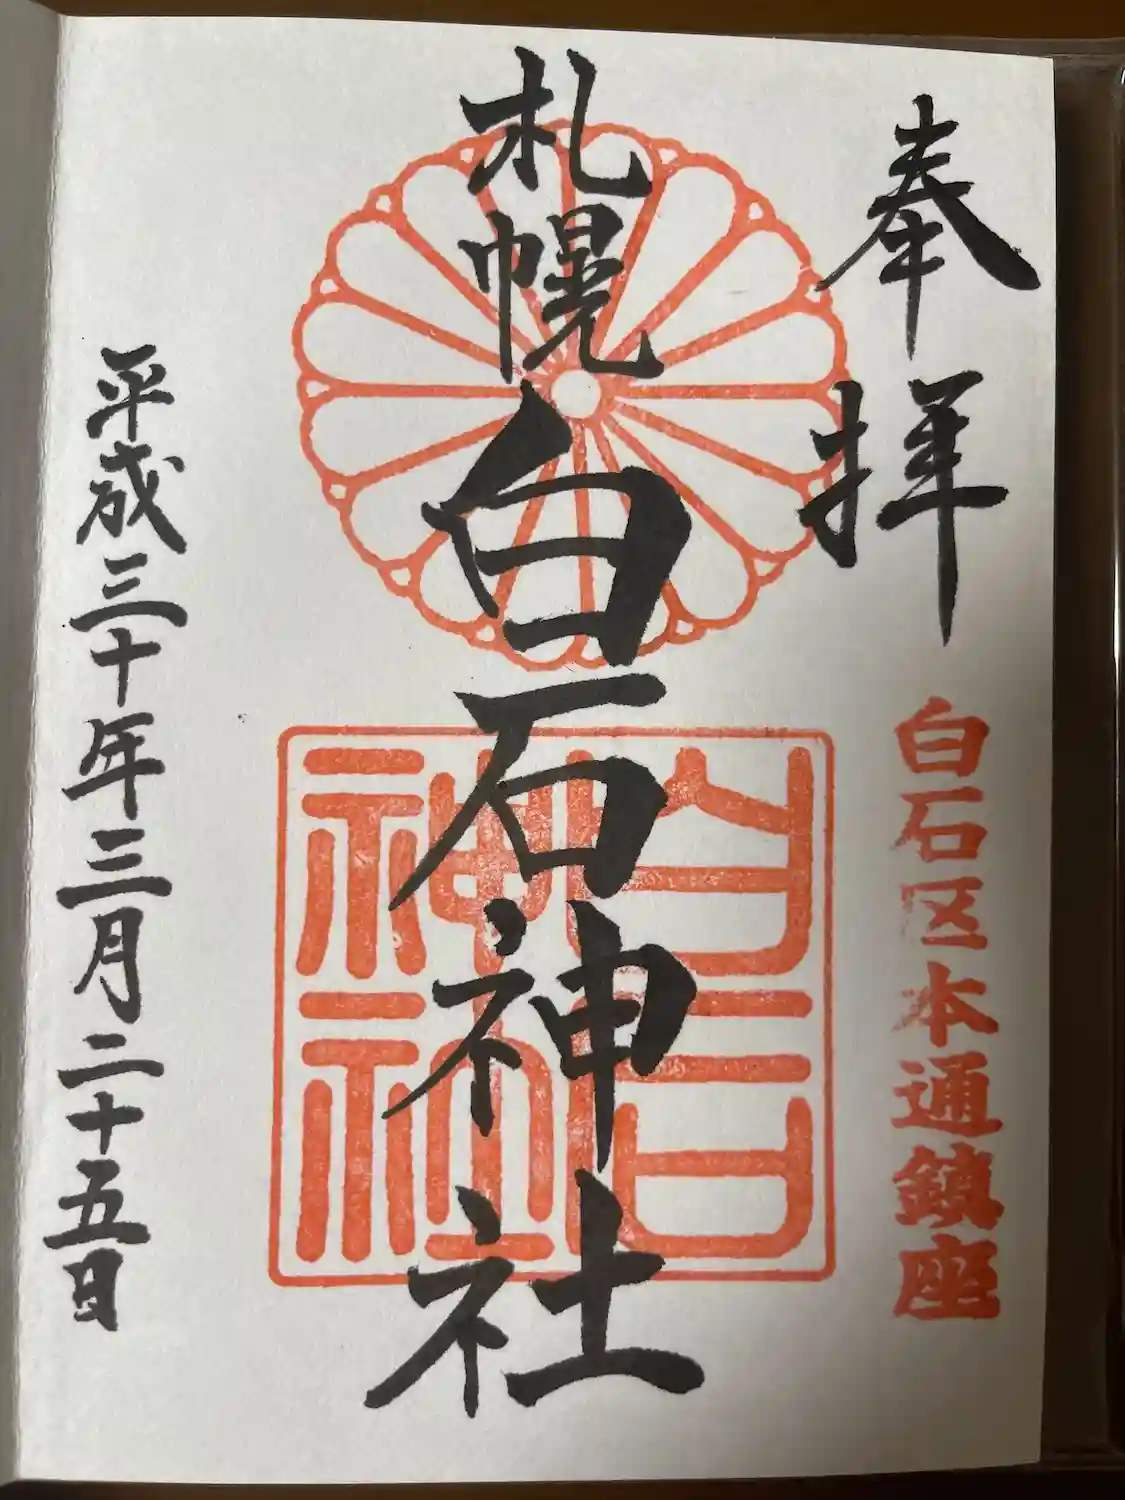 奉拝
白石区本通鎮座
札幌白石神社
白石神社
平成三十年三月二十五日